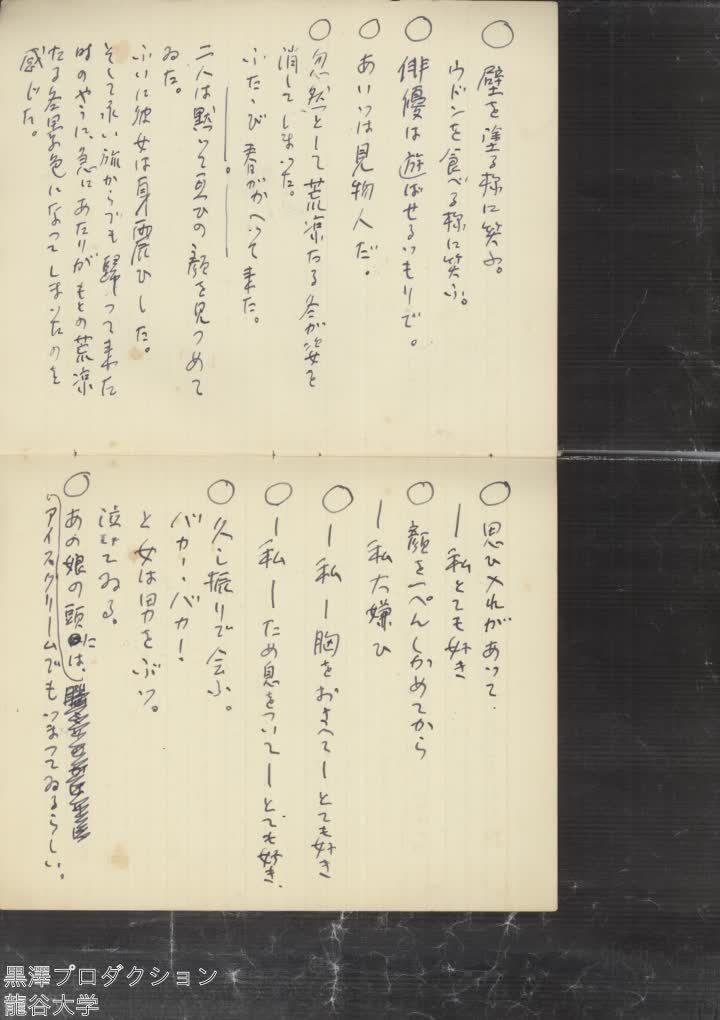 ○ 壁を塗る様に笑ふ。
ウドンを食べる様に笑ふ。
○ 俳優は遊ばせるつもりで。
○ あいつは見物人だ。
○ 忽然として荒凉たる冬が姿を
消してしまった。
ふたゝび春がかへって来た。
――。――
二人は黙って互ひの顔を見つめて
ゐた。
ふいに彼女は身震ひした。
そして永い旅からでも歸って来た
時のやうに、急にあたりがもとの荒凉
たる冬景色になってしまったのを
感じた。
○ 思ひ入れがあって
― 私とても好き
○ 顔を一ぺんしかめてから
― 私大嫌ひ
○ ― 私 ― 胸をおさへて ― とても好き
○ ― 私 ― ため息をついて ― とても好き.
○ 久し振りで会ふ。
バカー・バカー!
と女は男をぶつ。
泣いてゐる。
○ あの娘の頭には、
アイスクリームでもつまってゐるらしい。
黒澤プロダクション
龍谷大学